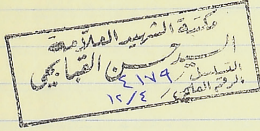 مكتبة الشهيد العلامة
السيد حسن القبانجي
التسلسل / ٤١٧٩
الرقم العلمي / ١٢/٤